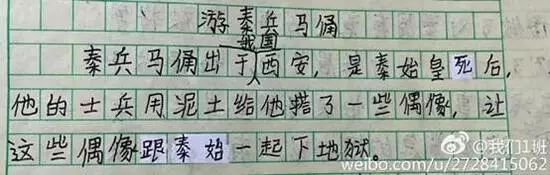 游秦兵马俑
我国
秦兵马俑出于西安，是秦始皇死后，
他的士兵用泥土给他搭了一些偶像，让
这些偶像跟秦始一起下地狱。
@我们1班
weibo.com/u/2728415062